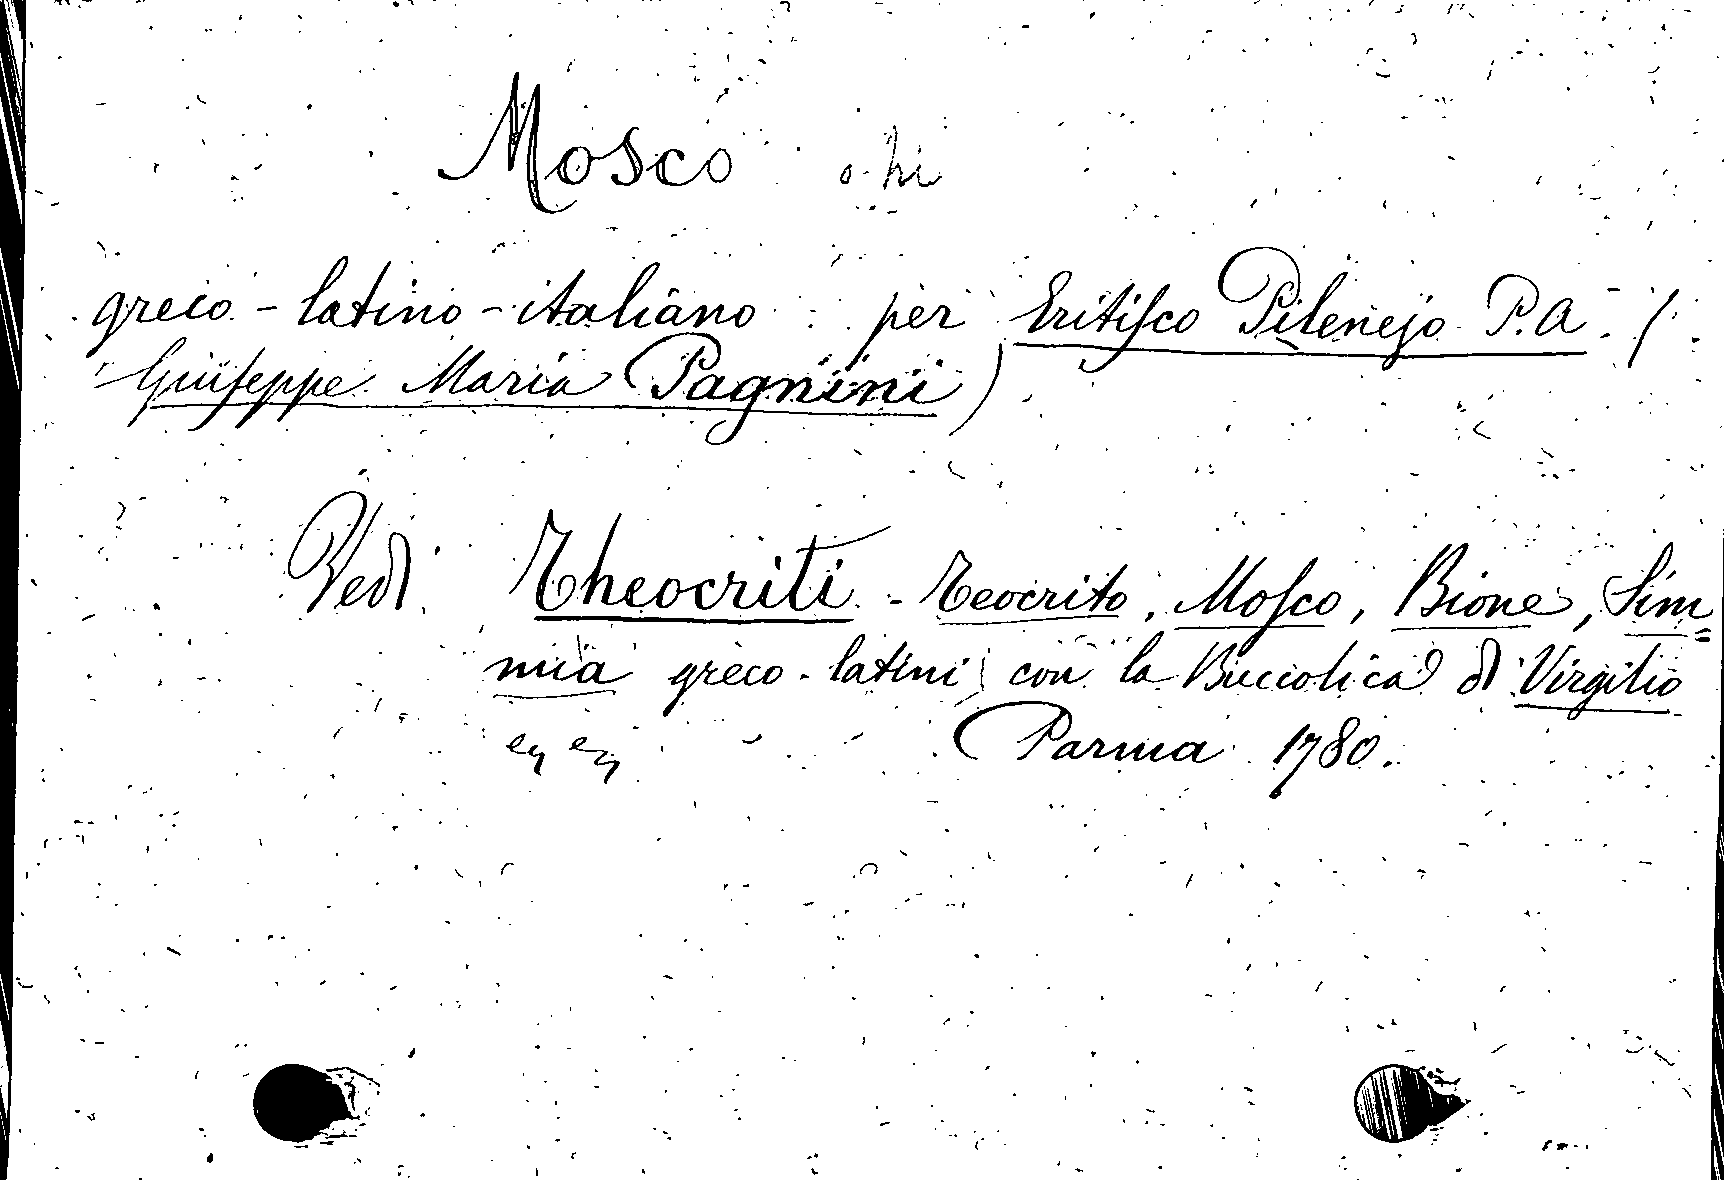 Mosco
greco-latino-italiano per Eritisco Pilenejo P.A. (
Giuseppe Maria Pagnini)
Vedi Theocriti - Teocrito, Mosco, Bione, Sim=
mia greco-latini, con la Bucciolica di Virgilio
Parma 1780.